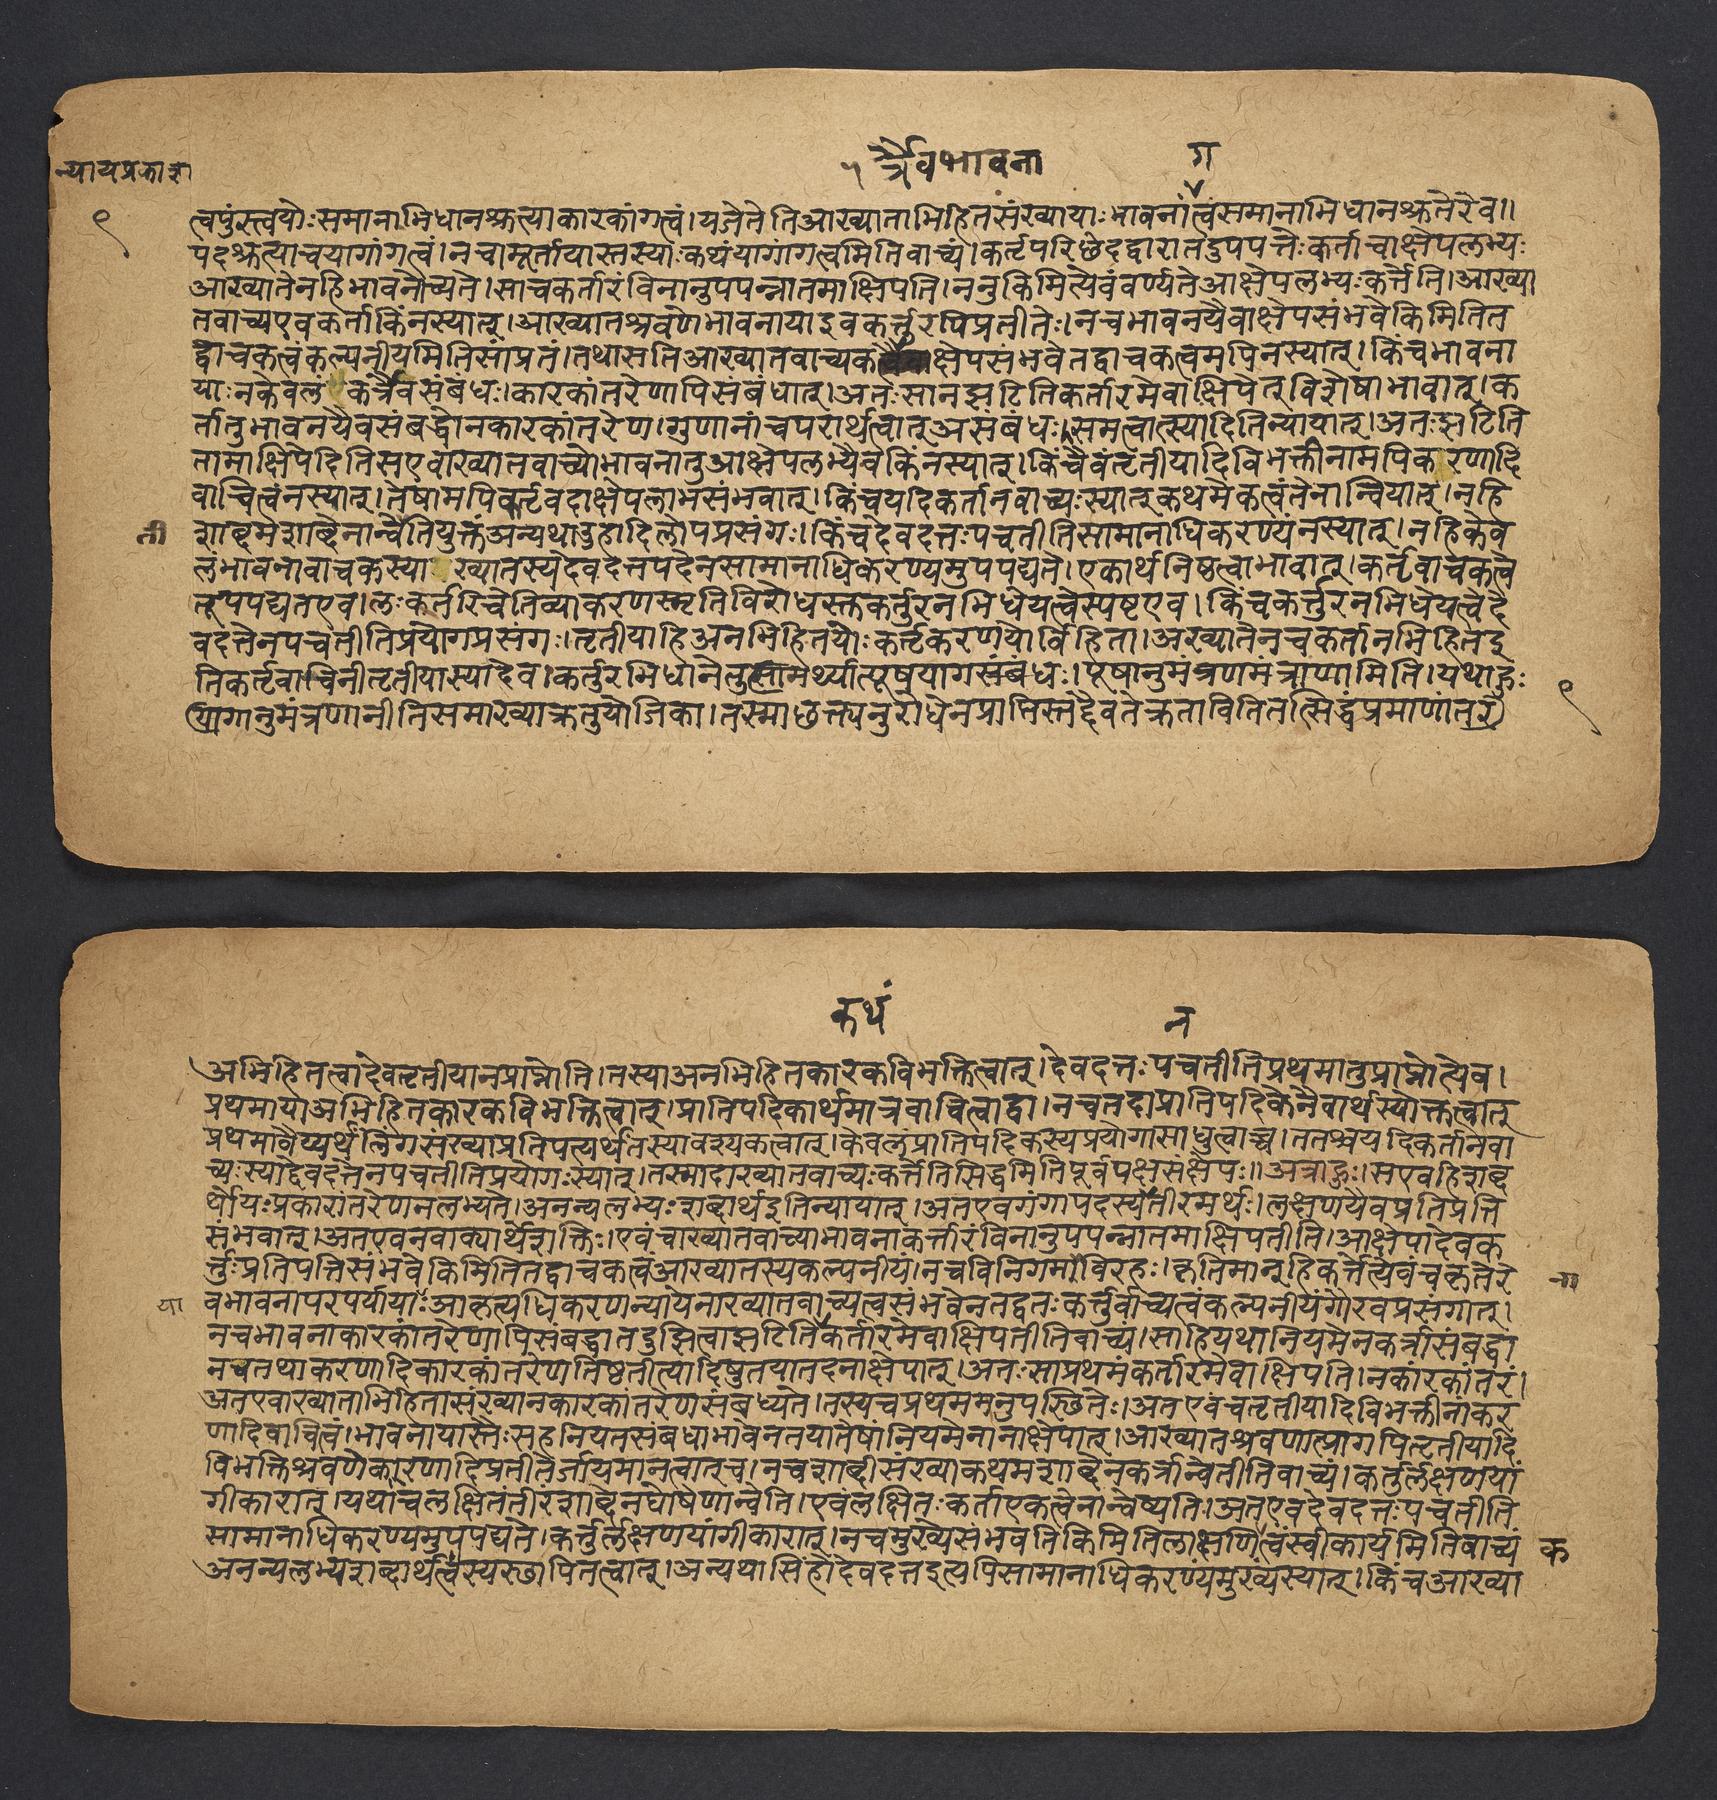 न्यायप्रकाश
५ र्त्रैवभावना
ग
९
त्वपुंस्त्वयोःसमानाभिधानश्रुत्याकारकांगत्वं।यजेतेतिआख्याताभिहितसंख्यायाःभावनांत्वंसमानाभिधानश्रुतेरेव॥
पदश्रुत्याचयागांगत्वं।नचामूर्तायास्तस्याःकथंयागांगत्वमितिवाच्यं।कर्तृपरिछेदद्वारातदुपपत्तेःकर्ताचाक्षेपलभ्यः
आख्यातेनहिभावनोच्यते।साचकर्तारंविनानुपपन्नातमाक्षिपति।ननुकिमित्येवंवर्ण्यतेआक्षेपलभ्यःकर्त्तेति।आख्या
तवाच्यएवकर्ताकिंनस्यात्।आख्यातश्रवणेभावनायाइवकर्त्तुरपिप्रतीतेः।नचभावनयैवाक्षेपसंभवेकिमितित
द्वाचकत्वंकल्पनीयमितिसांप्रतं।तथासतिआख्यातवाच्यकर्त्रैवाक्षेपसंभवेतद्वाचकत्वमपिनस्यात्।किंचभावना
याःनकेवलं कर्त्रैवसंबंधः।कारकांतरेणापिसंबंधात्।अतःसानझटितिकर्तारमेवाक्षिपेत्विशेषाभावात्।क
र्तातुभावनयैवसंबद्धोनकारकांतरेण।गुणानांचपरार्थत्वात्असंबंधः।समत्वात्स्यादितिन्यायात्।अतःझटिति
तामाक्षिपेदितिसएवाख्यातवाच्योभावनातुआक्षेपलभ्यैवकिंनस्यात्।किंचैवंतृतीयादिविभक्तीनामपिक रणादि
वाचित्वंनस्यात्।तेषामपिकर्तृवदाक्षेपलाभसंभवात्।किंचयदिकर्तानवाच्यःस्यात्कथमेकत्वंतेनान्वियात्।नहि
ती
शाब्दमशाब्देनान्वेतियुक्तंअन्यथाउहादिलोपप्रसंगः।किंचदेवदत्तःपचतीतिसामानाधिकरण्यंनस्यात्।नहिकेव
लंभावनावाचकस्या ख्यातस्यदेवदत्तपदेनसामानाधिकरण्यमुपपद्यते।एकार्थनिष्ठत्वाभावात्।कर्तृवाचकत्वे
तूपपद्यतएव।लःकर्तरिचेतिव्याकरणस्मृतिविरोधस्तकर्तुरनभिधेयत्वेस्पष्टएव।किंचकर्त्तुरनभिधेयत्वेदे
वदत्तेनपचतीतिप्रयोगप्रसंगः।तृतीयाहिअनभिहितयोःकर्तृकरणयोर्विहिता।अख्यातेनचकर्तानभिहितइ
तिकर्तृवाचिनीतृतीयास्यादेव।कर्तुरभिधानेतुसामर्थ्यात्पूषयागसंबंधः।पूषानुमंत्रणमंत्राणामिति।यथाहुः
यागानुमंत्रणानीतिसमाख्याक्रतुयोजिका।तस्माछत्त्यनुरोधेनप्राप्तिस्तद्देवतेक्रताविति तत्सिद्धंप्रमाणांतरे
९
कथं
न
अभिहितत्वादेवतृतीयानप्राप्नोति।तस्याअनभिहितकारकविभक्तित्वात्।देवदत्तःपचतीतिप्रथमातुप्राप्नोत्येव।
प्रथमायाअभिहितकारकविभक्तित्वात्।प्रातिपदिकार्थमात्रवाचित्वाद्वा।नचतदाप्रातिपदिकेनैवार्थस्योक्तत्वात्
प्रथमावैय्यर्थंलिंगसंख्याप्रतिपत्यर्थंतस्यावश्यकत्वात्।केवलप्रातिपदिकस्यप्रयोगासाधुत्वाच्च।ततश्चयदिकर्तानवा
च्यःस्याद्देवदत्तेनपचतीतिप्रयोगःस्यात्।तस्मादाख्यातवाच्यःकर्त्तेतिसिद्धमितिपूर्वपक्षसंक्षेपः॥अत्राहुः।सएवहिशब्द
र्थोयःप्रकारांतरेणनलभ्यते।अनन्यलभ्यःशब्दार्थइतिन्यायात्।अतएवगंगापदस्यतीरमर्थः।लक्षणयैवप्रतिप्रत्ति
संभवात्।अतएवनवाक्यार्थेशक्तिः।एवंचाख्यातवाच्याभावनाकर्त्तारंविनानुपपन्नातमाक्षिपतीति।आक्षेपादेवक
र्त्तुःप्रतिपत्तिसंभवेकिमितितद्वाचकत्वंआख्यातस्यकल्पनीयं।नचविनिगमाविरहः।कृतिमान्हिकर्त्तेत्येवंचकृतेरे
ना
या
वभावनापरपर्यायाःआकृत्यधिकरणन्यायेनाख्यातवाच्यत्वसंभवेनतद्वतःकर्त्तुर्वाच्यत्वंकल्पनीयंगौरवप्रसंगात्।
नचभावनाकारकांतरेणापिसंबद्धातदुझित्वाझटितिकर्तारमेवाक्षिपतीतिवाच्यं।साहियथानियमेनकर्त्रासंबद्धा
नचतथाकरणादिकारकांतरेणतिष्ठतीत्यादिषुतयातदनाक्षेपात्।अतःसाप्रथमंकर्तारमेवाक्षिपति।नकारकांतरं।
अतएवाख्याताभिहितासंख्यानकारकांतरेणसंबध्यते।तस्यचप्रथममनुपस्थितेः।अतएवंचतृतीयादिविभक्तीनांकर
णादिवाचित्वं।भावनायास्तैःसहनियतसंबंधाभावेनतयातेषांनियमेनानाक्षेपात्।आख्यातश्रवणात्प्रागपितृतीयादि
विभक्तिश्रवणेकारणादिप्रतीतेर्जायमानत्वात्च।नचशाब्दीसंख्याकथमशाब्देनकर्त्रान्वेतीतिवाच्यं।कर्तुर्लक्षणयां
गीकारात्।यथाचलक्षितंतीरंशाब्देनघोषेणान्वेति।एवंलक्षितःकर्ताएकत्वेनान्वेष्यति।अतएवदेवदत्तःपचतीति
सामानाधिकरण्यमुपपद्यते।कर्त्तुर्लक्षणयांगीकारात्।नचमुख्यसंभवतिकिमितिलाक्षणित्वंस्वीकार्यमितिवाच्यं
क
अनन्यलभ्यशब्दार्थत्वस्यस्थापितत्वात्।अन्यथासिंहोदेवदत्तइत्यपिसामानाधिकरण्यंमुख्यंस्यात्।किंचआख्या